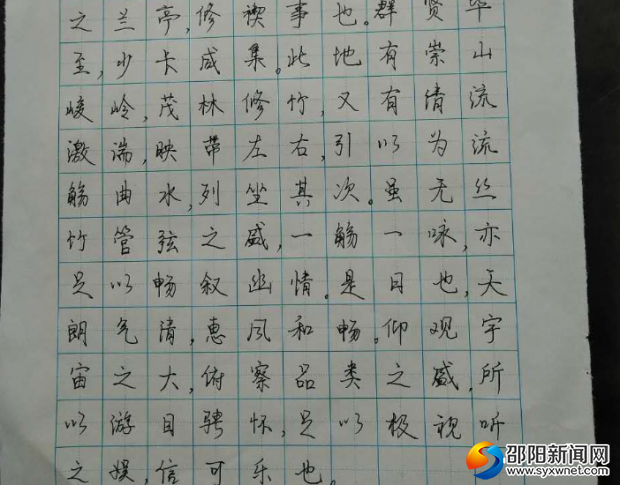 之兰亭,修禊事也。群贤毕
至,少长咸集。此地有崇山
峻岭,茂林修竹,又有清流
激湍,映带左右,引以为流
觞曲水,列坐其次。虽无丝
竹管弦之盛,一觞一咏,亦
足以畅叙幽情。是日也,天
朗气清,惠风和畅。仰观宇
宙之大,俯察品类之盛,所
以游目骋怀,足以极视听
之娱,信可乐也。
邵阳新闻网
www.syxwnet.com